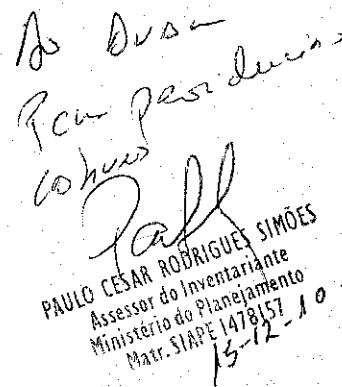 Ao
Para providências
PAULO CESAR RODRIGUES SIMÕES
Assessor do Inventariante
Ministério do Planejamento
Matr. SIAPE 1478157
15-12-10